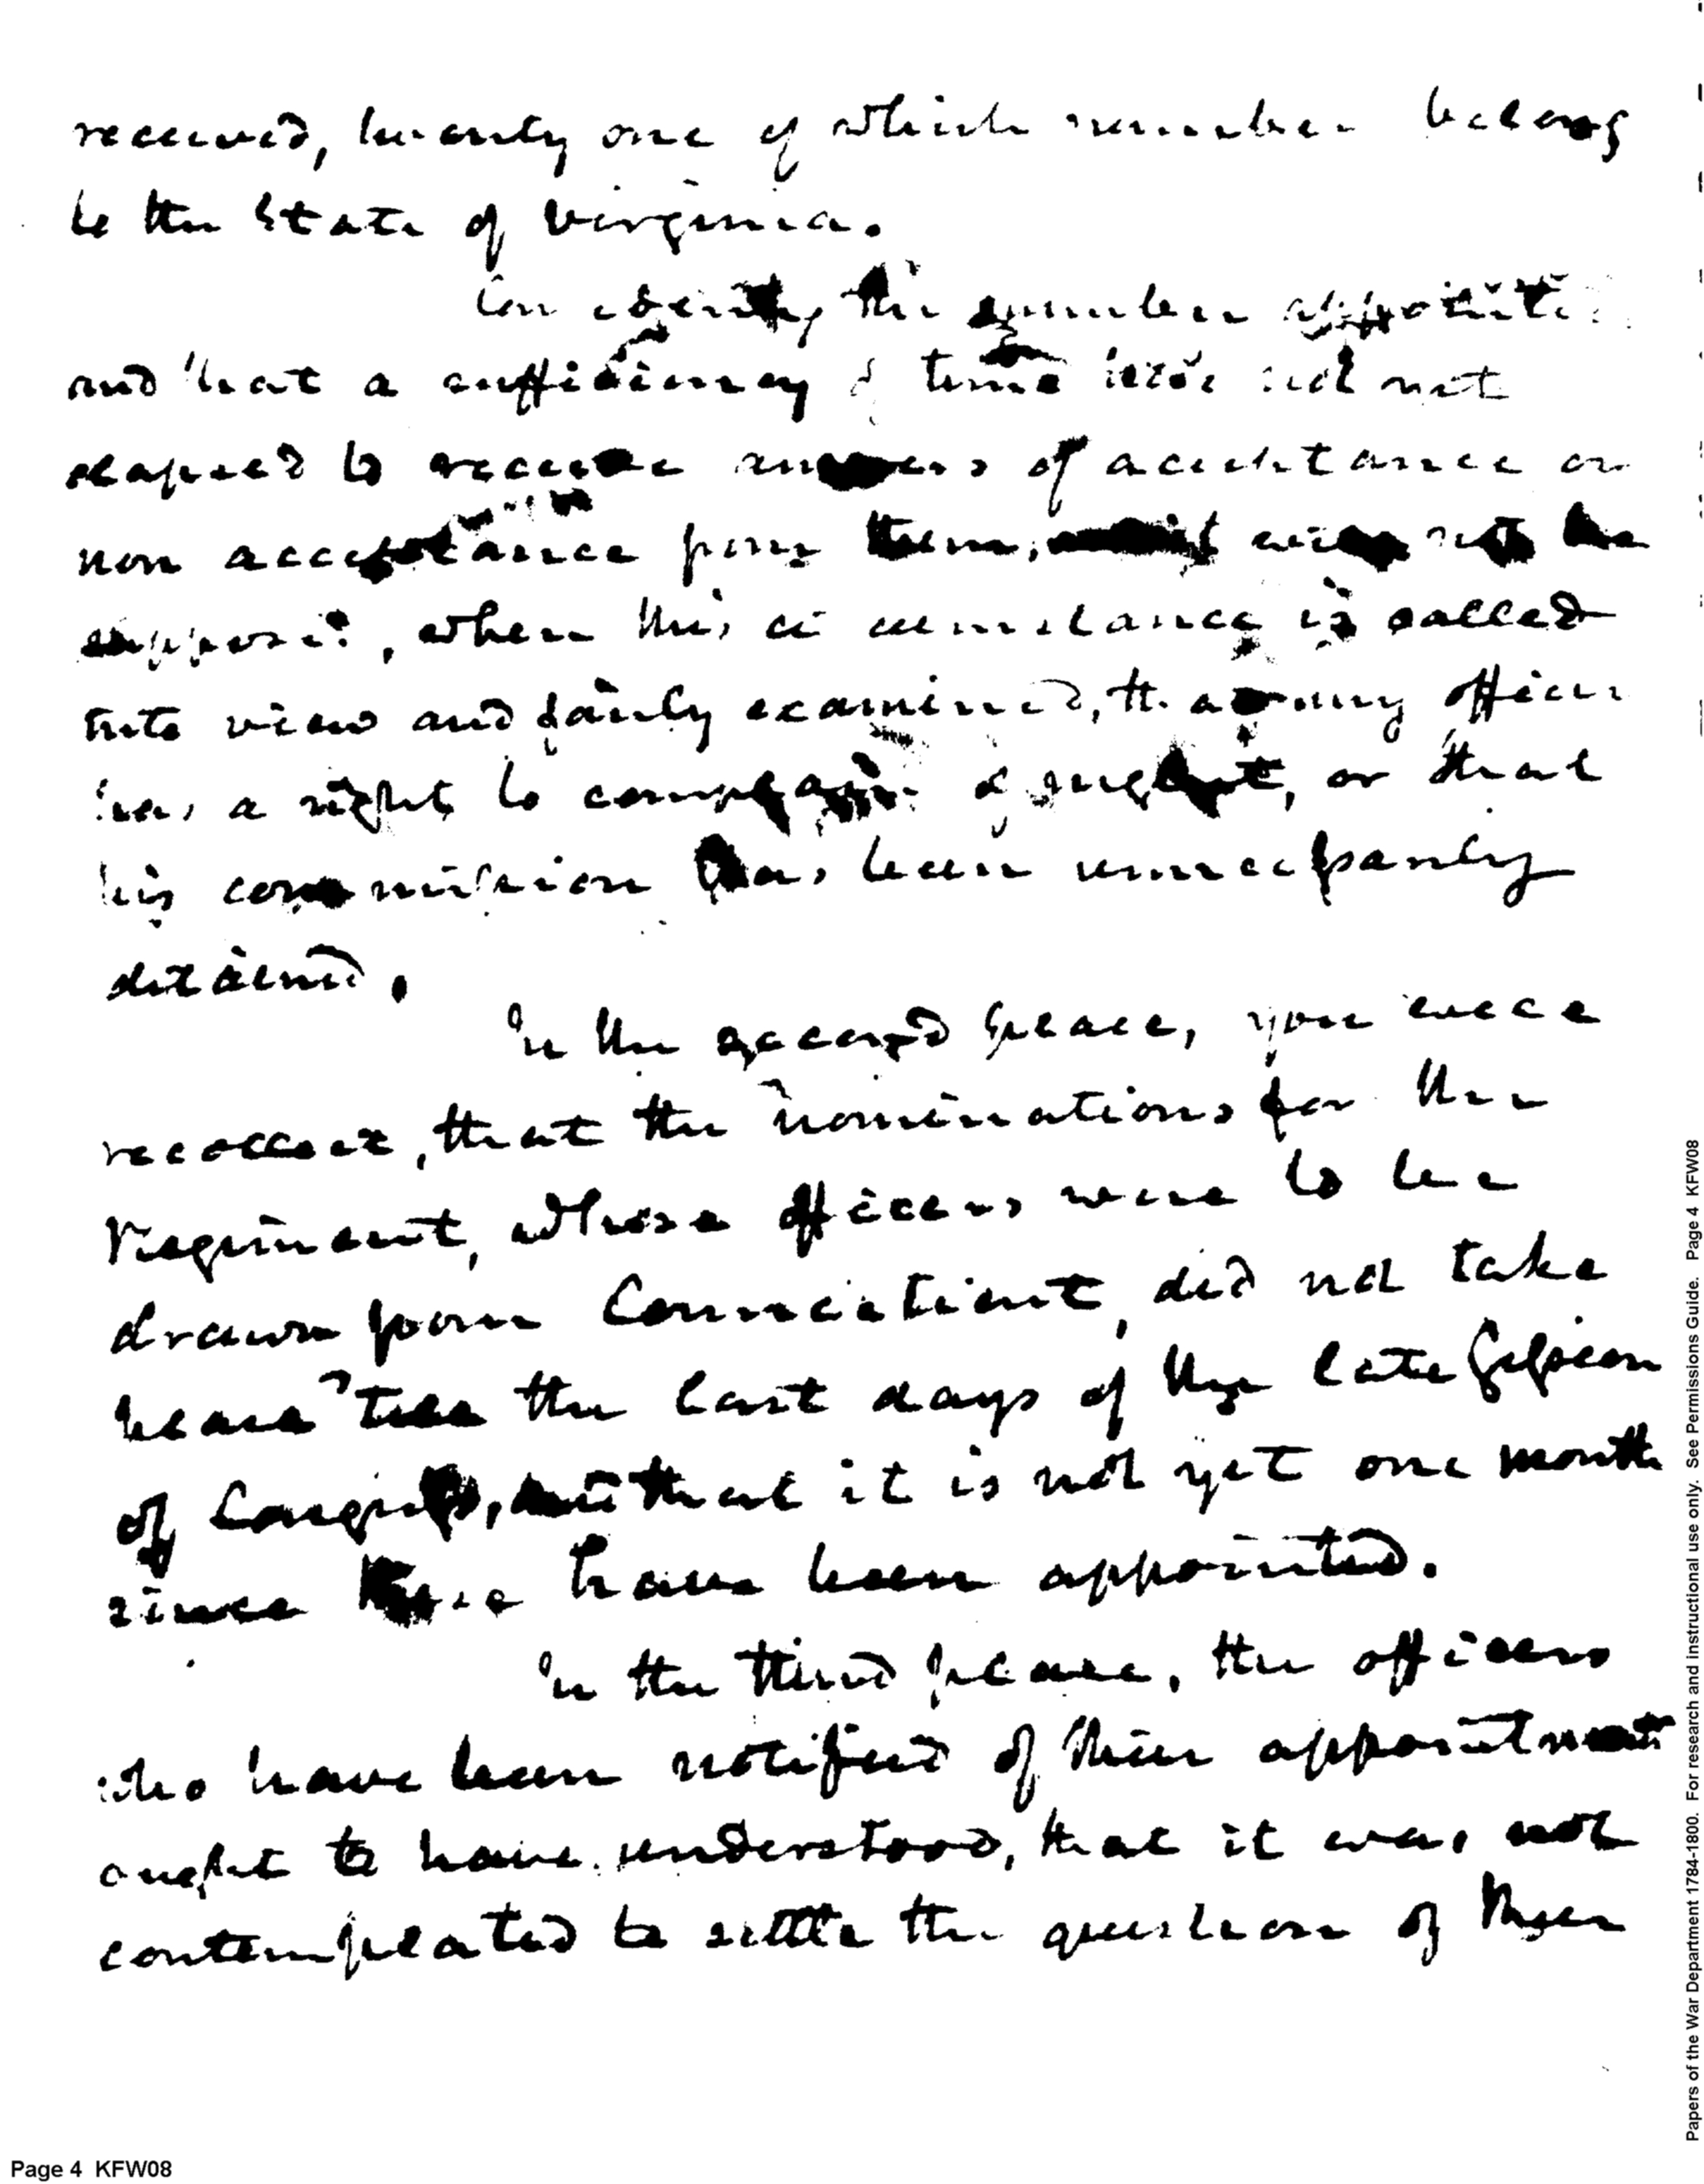 received, twenty one of which number belong
to the State of Virginia.
Considering the number appointed
and that a sufficiency of time has not
elapsed to receive answers of acceptance or
non acceptance from them, it will not be
supposed, when this circumstance is called
into view and fairly examined, that any officer
has a right to complain of neglect, or that
his commission has been unnecessarily
detained.
In the second place, you will
recollect, that the nominations for the
Regiment, whose officers were to be
drawn from Connecticut, did not take
place till the last days of the late Session
of Congress, and that it is not yet one month
since these have been appointed.
In the third place, the officers
who have been notified of their appointments
ought to have understood, that it was not
contemplated to settle the question of their
Page 4 KFW08
Papers of the War Department 1784-1800. For research and instructional use only. See Permissions Guide. Page 4 KFW08